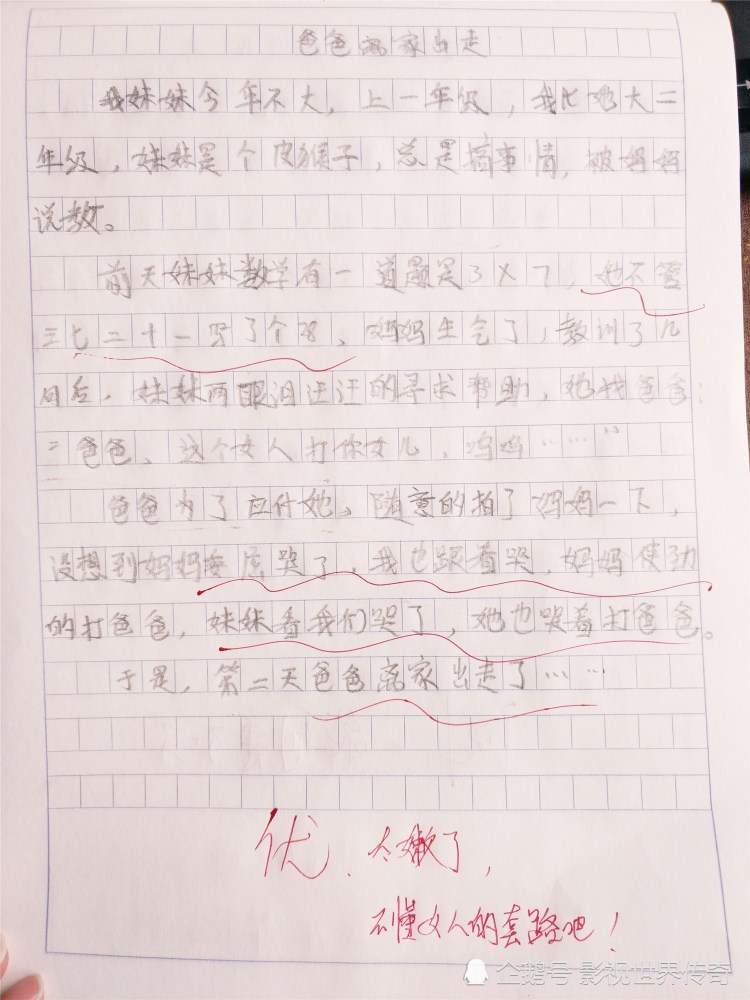 爸爸离家出走
我妹妹今年不大，上一年级，我比她大二
年级，妹妹是个皮猴子，总是搞事情，被妈妈
说教。
前天妹妹数学有一道题是3×7，她不管
三七二十一写了个28、妈妈生气了，教训了几
句后，妹妹两眼泪汪汪的寻求帮助，她找爸爸：
“爸爸、这个女人打你女儿，呜呜……”
爸爸为了应付她，随意的拍了妈妈一下，
没想到妈妈哭了，我也跟着哭，妈妈使劲
的打爸爸，妹妹看我们哭了，她也哭着打爸爸。
于是，第二天爸爸离家出走了……
优、太嫩了，
不懂女人的套路吧！
企鹅号 影视世界传奇